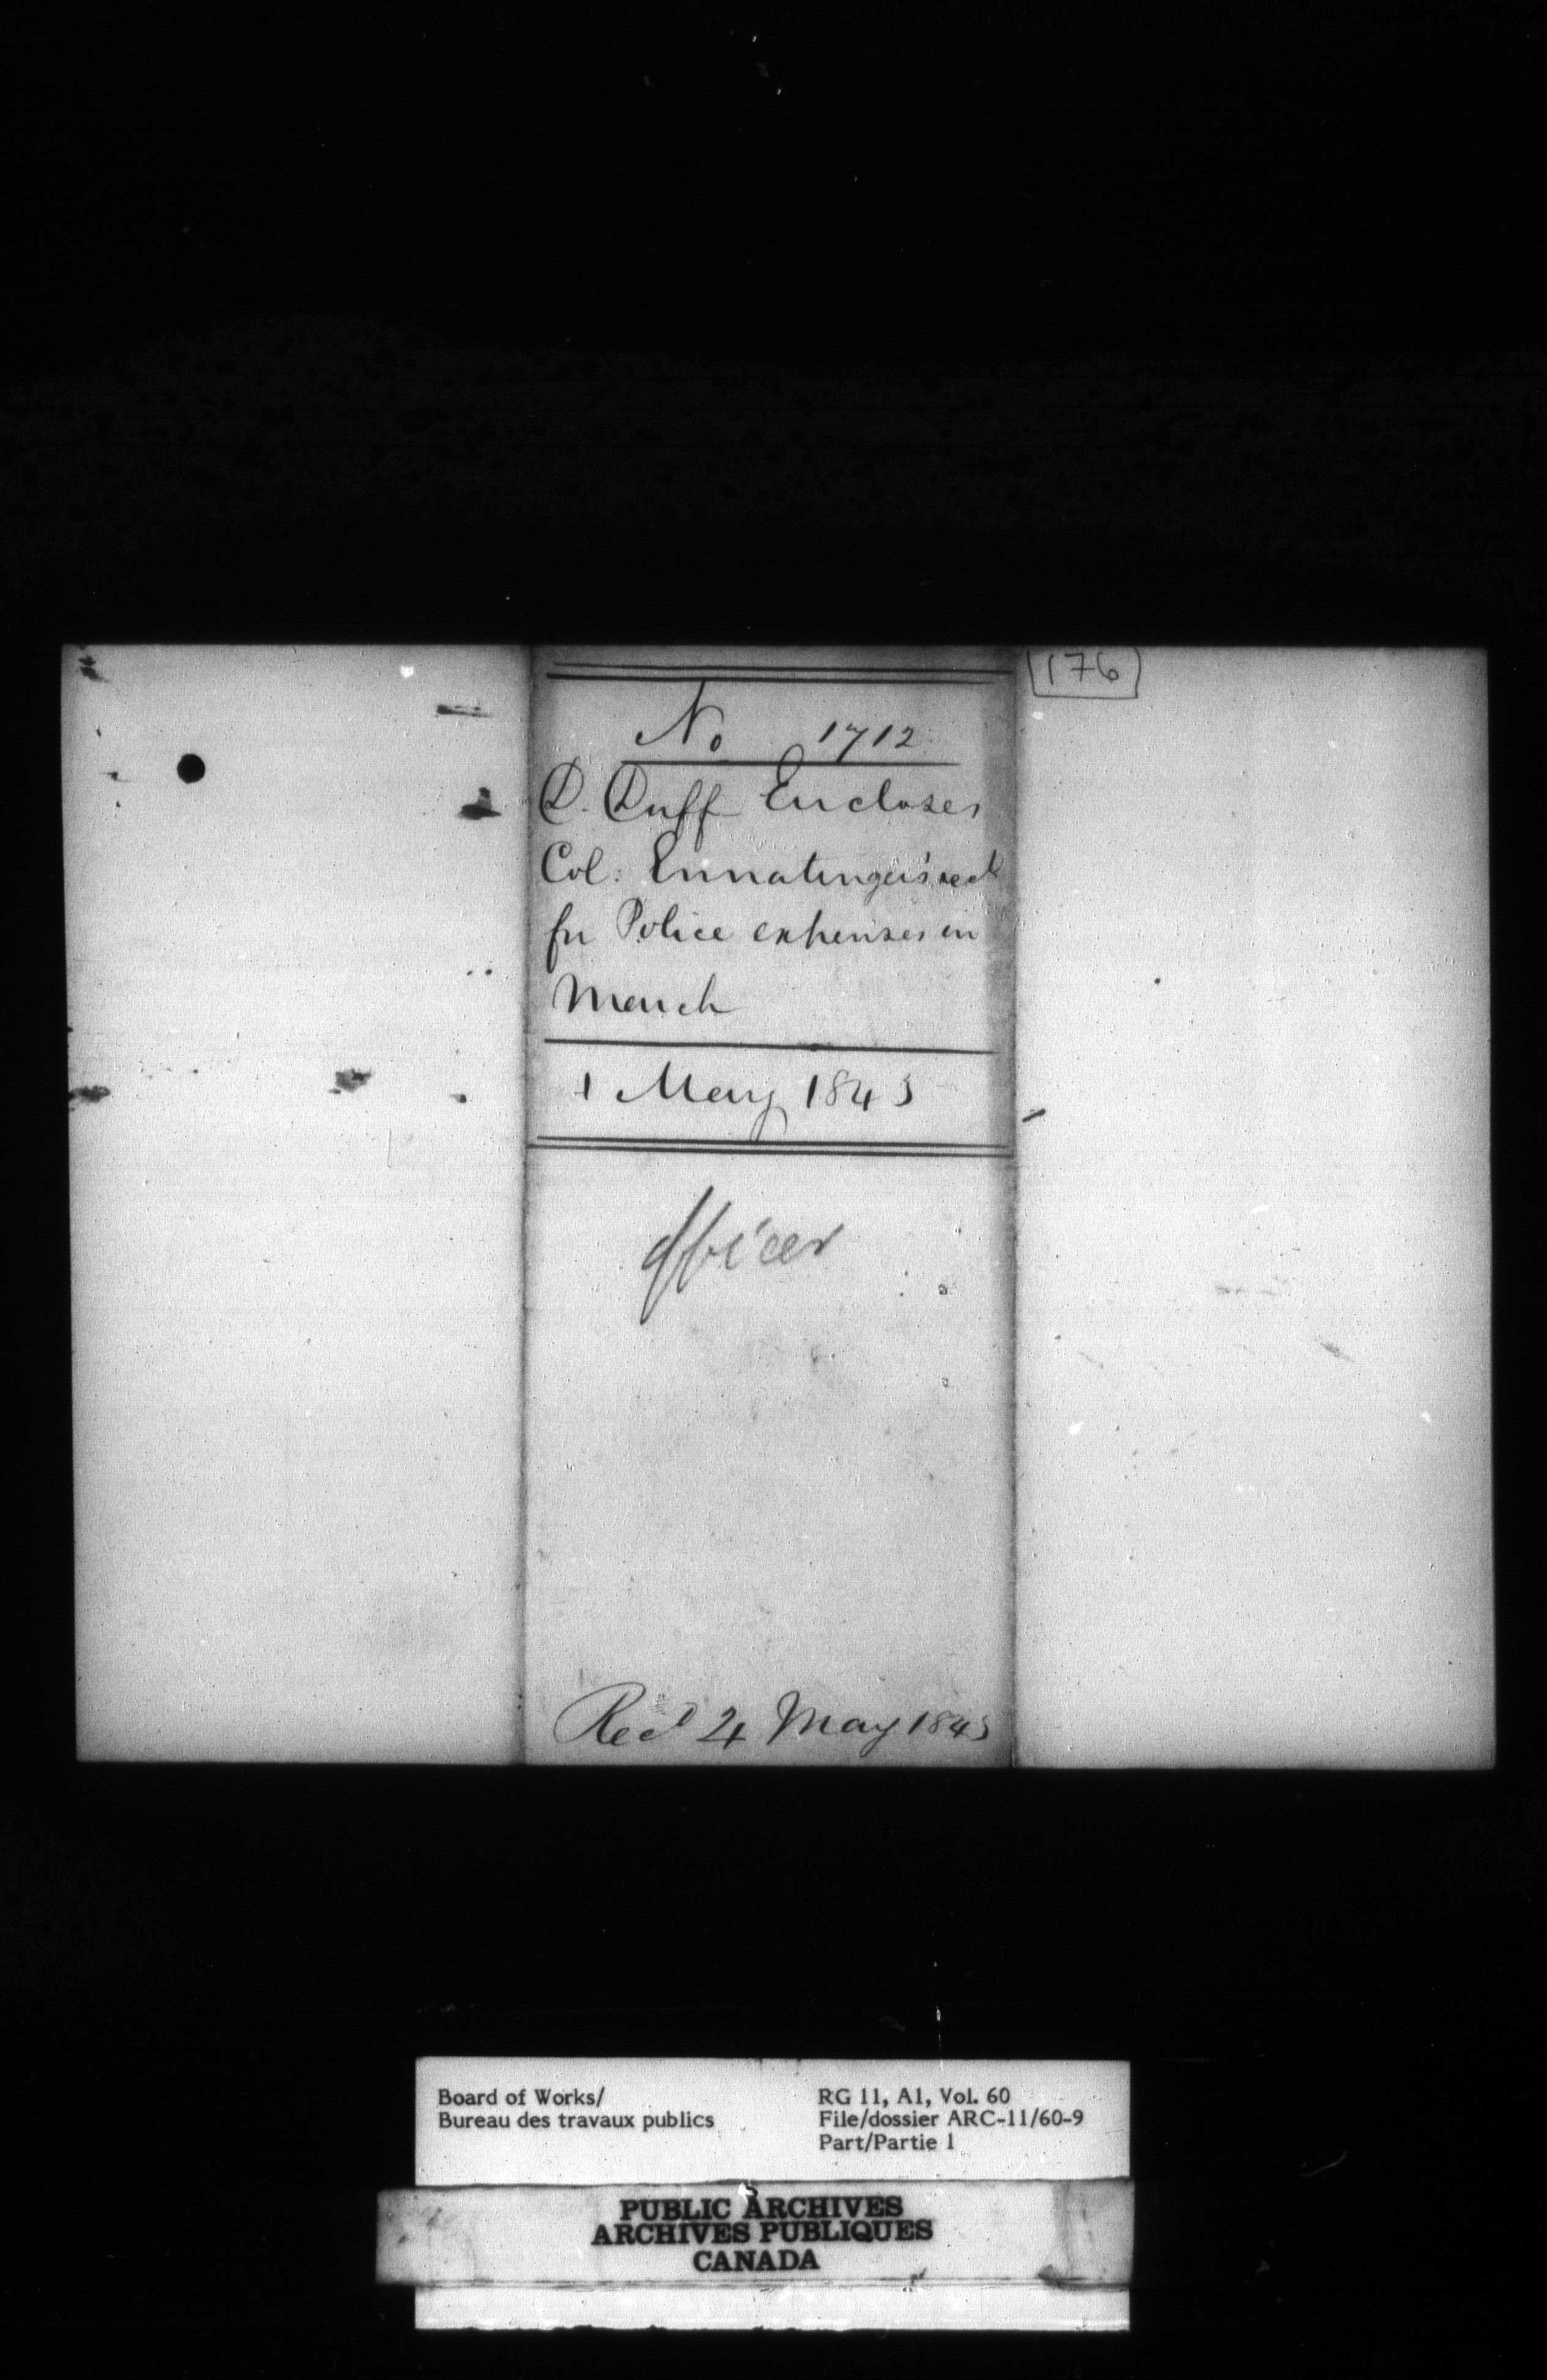 176
No 1712
D. Duff Encloses
Col: Ermatinger's rect
for Police expenses in
March
1 May 1843
Officer
Recd 4 May 1843
Board of Works/
Bureau des travaux publics
RG 11, A1, Vol. 60
File/dossier ARC-11/60-9
Part/Partie 1
PUBLIC ARCHIVES
ARCHIVES PUBLIQUES
CANADA